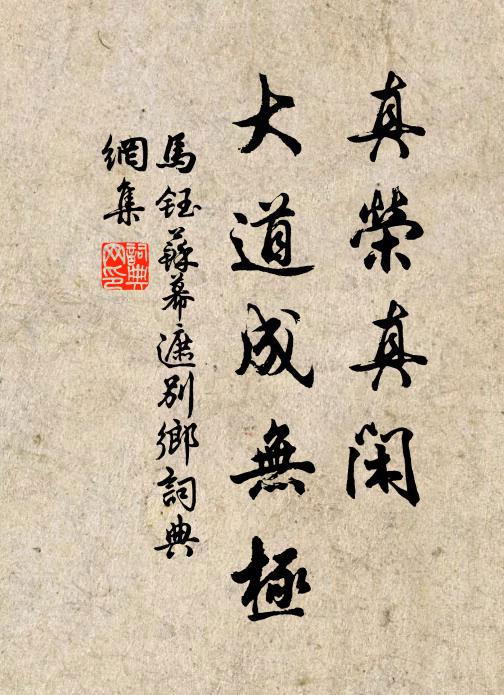 真榮真閑
大道成無極
馬鈺蘇幕遮別鄉詞典
網集
詞典網印